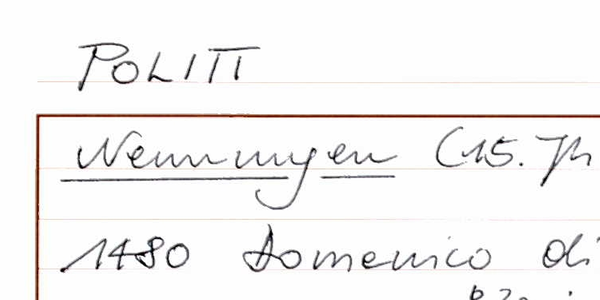 POLITI
Nennungen (15. Jh
1480 Domenico di